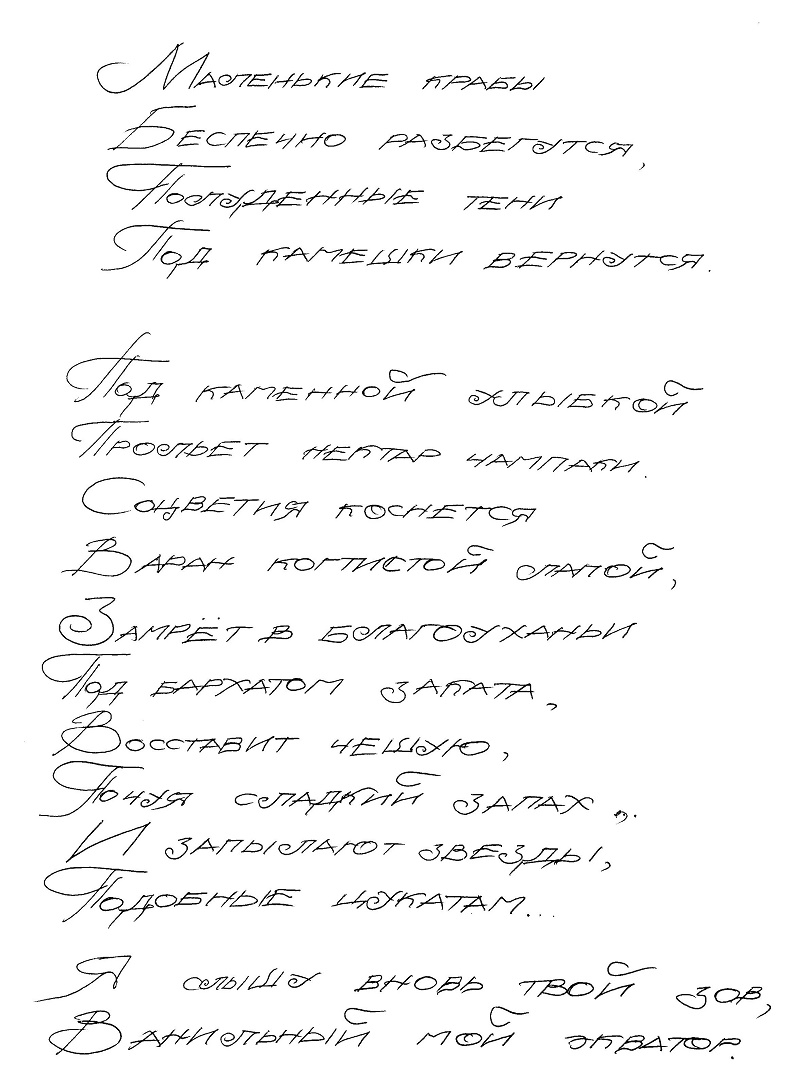 Маленькие крабы
Беспечно разбегутся,
Полуденные тени
Под камешки вернутся.
Под каменной улыбкой
Прольет нектар чампаки.
Соцветия коснется
Варан когтистой лапой,
Замрёт в благоуханьи
Под бархатом заката,
Восставит чешую,
Почуя сладкий запах,.
И запылают звезды,
Подобные цукатам...
Я слышу вновь твой зов,
Ванильный мой экватор.